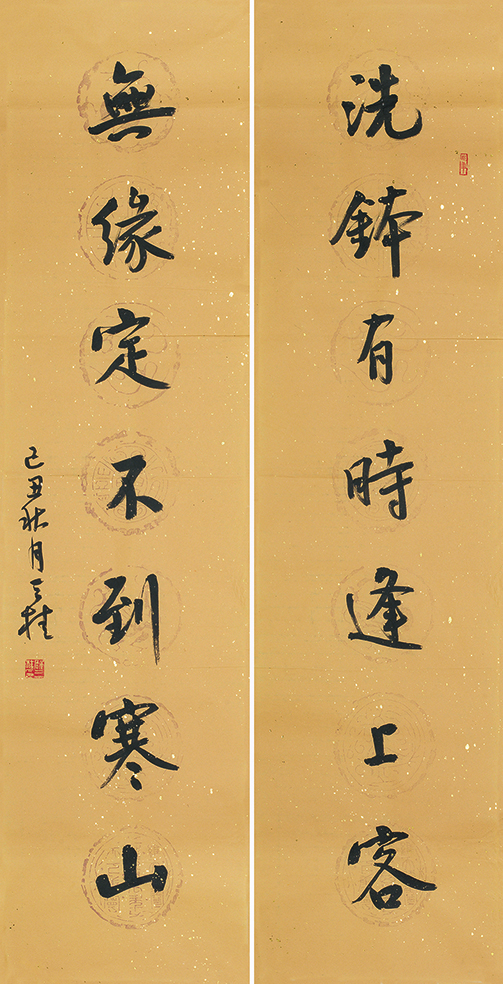 洗鉢有時逢上客
無緣定不到寒山
己丑秋月